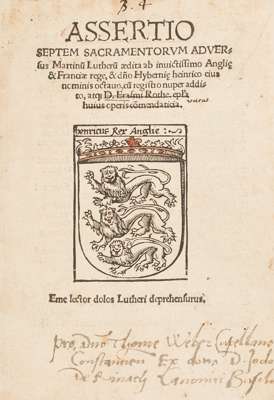 3.4
ASSERTIO
SEPTEM SACRAMENTORVM ADVER-
sus Martinũ Lutherũ ædita ab inuictissimo Anglię
& Franciæ rege, & dño Hybernię henrico eius
nominis octauo, cũ registro nuper addi-
to, atqꝫ D. Erasmi Rothe. epꝉa
huius operis cõmendaticia.
henricus Rex Anglie:
Eme lector dolos Lutheri deprehensurus.
pro dno Thome Weber Capellano
Constancien Ex dono D. Jodo
Canonici Basil